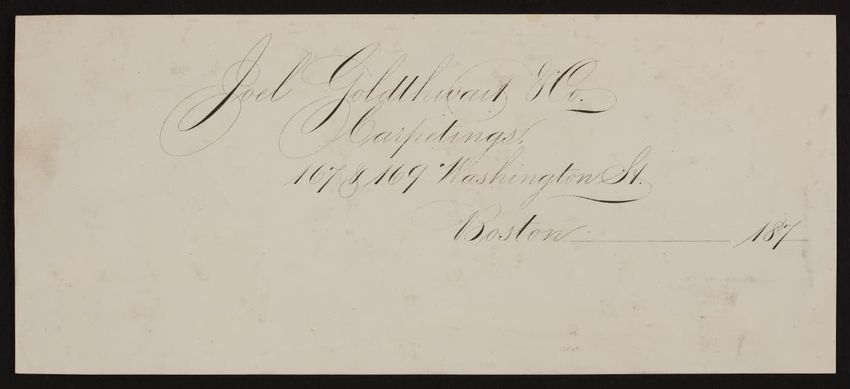 Joel Goldthwait & Co.
Carpetings,
167 & 169 Washington St.
Boston 187